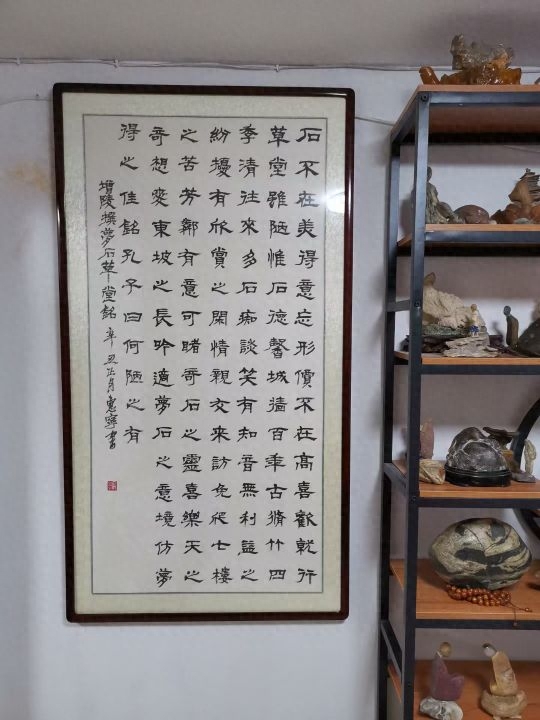 石不在美得意忘形價不在高喜歡就行
草堂雖陋惟石德馨城墻百年古脩竹四
季清往來多石痴談笑有知音無利益之
紛擾有欣賞之閑情親友來訪免爬七樓
之苦芳鄰有意可睹奇石之靈喜樂天之
奇想愛東坡之長吟適夢石之意境仿夢
得之佳銘孔子曰何陋之有
增陵撰夢石草堂銘 辛丑正月惠寧書